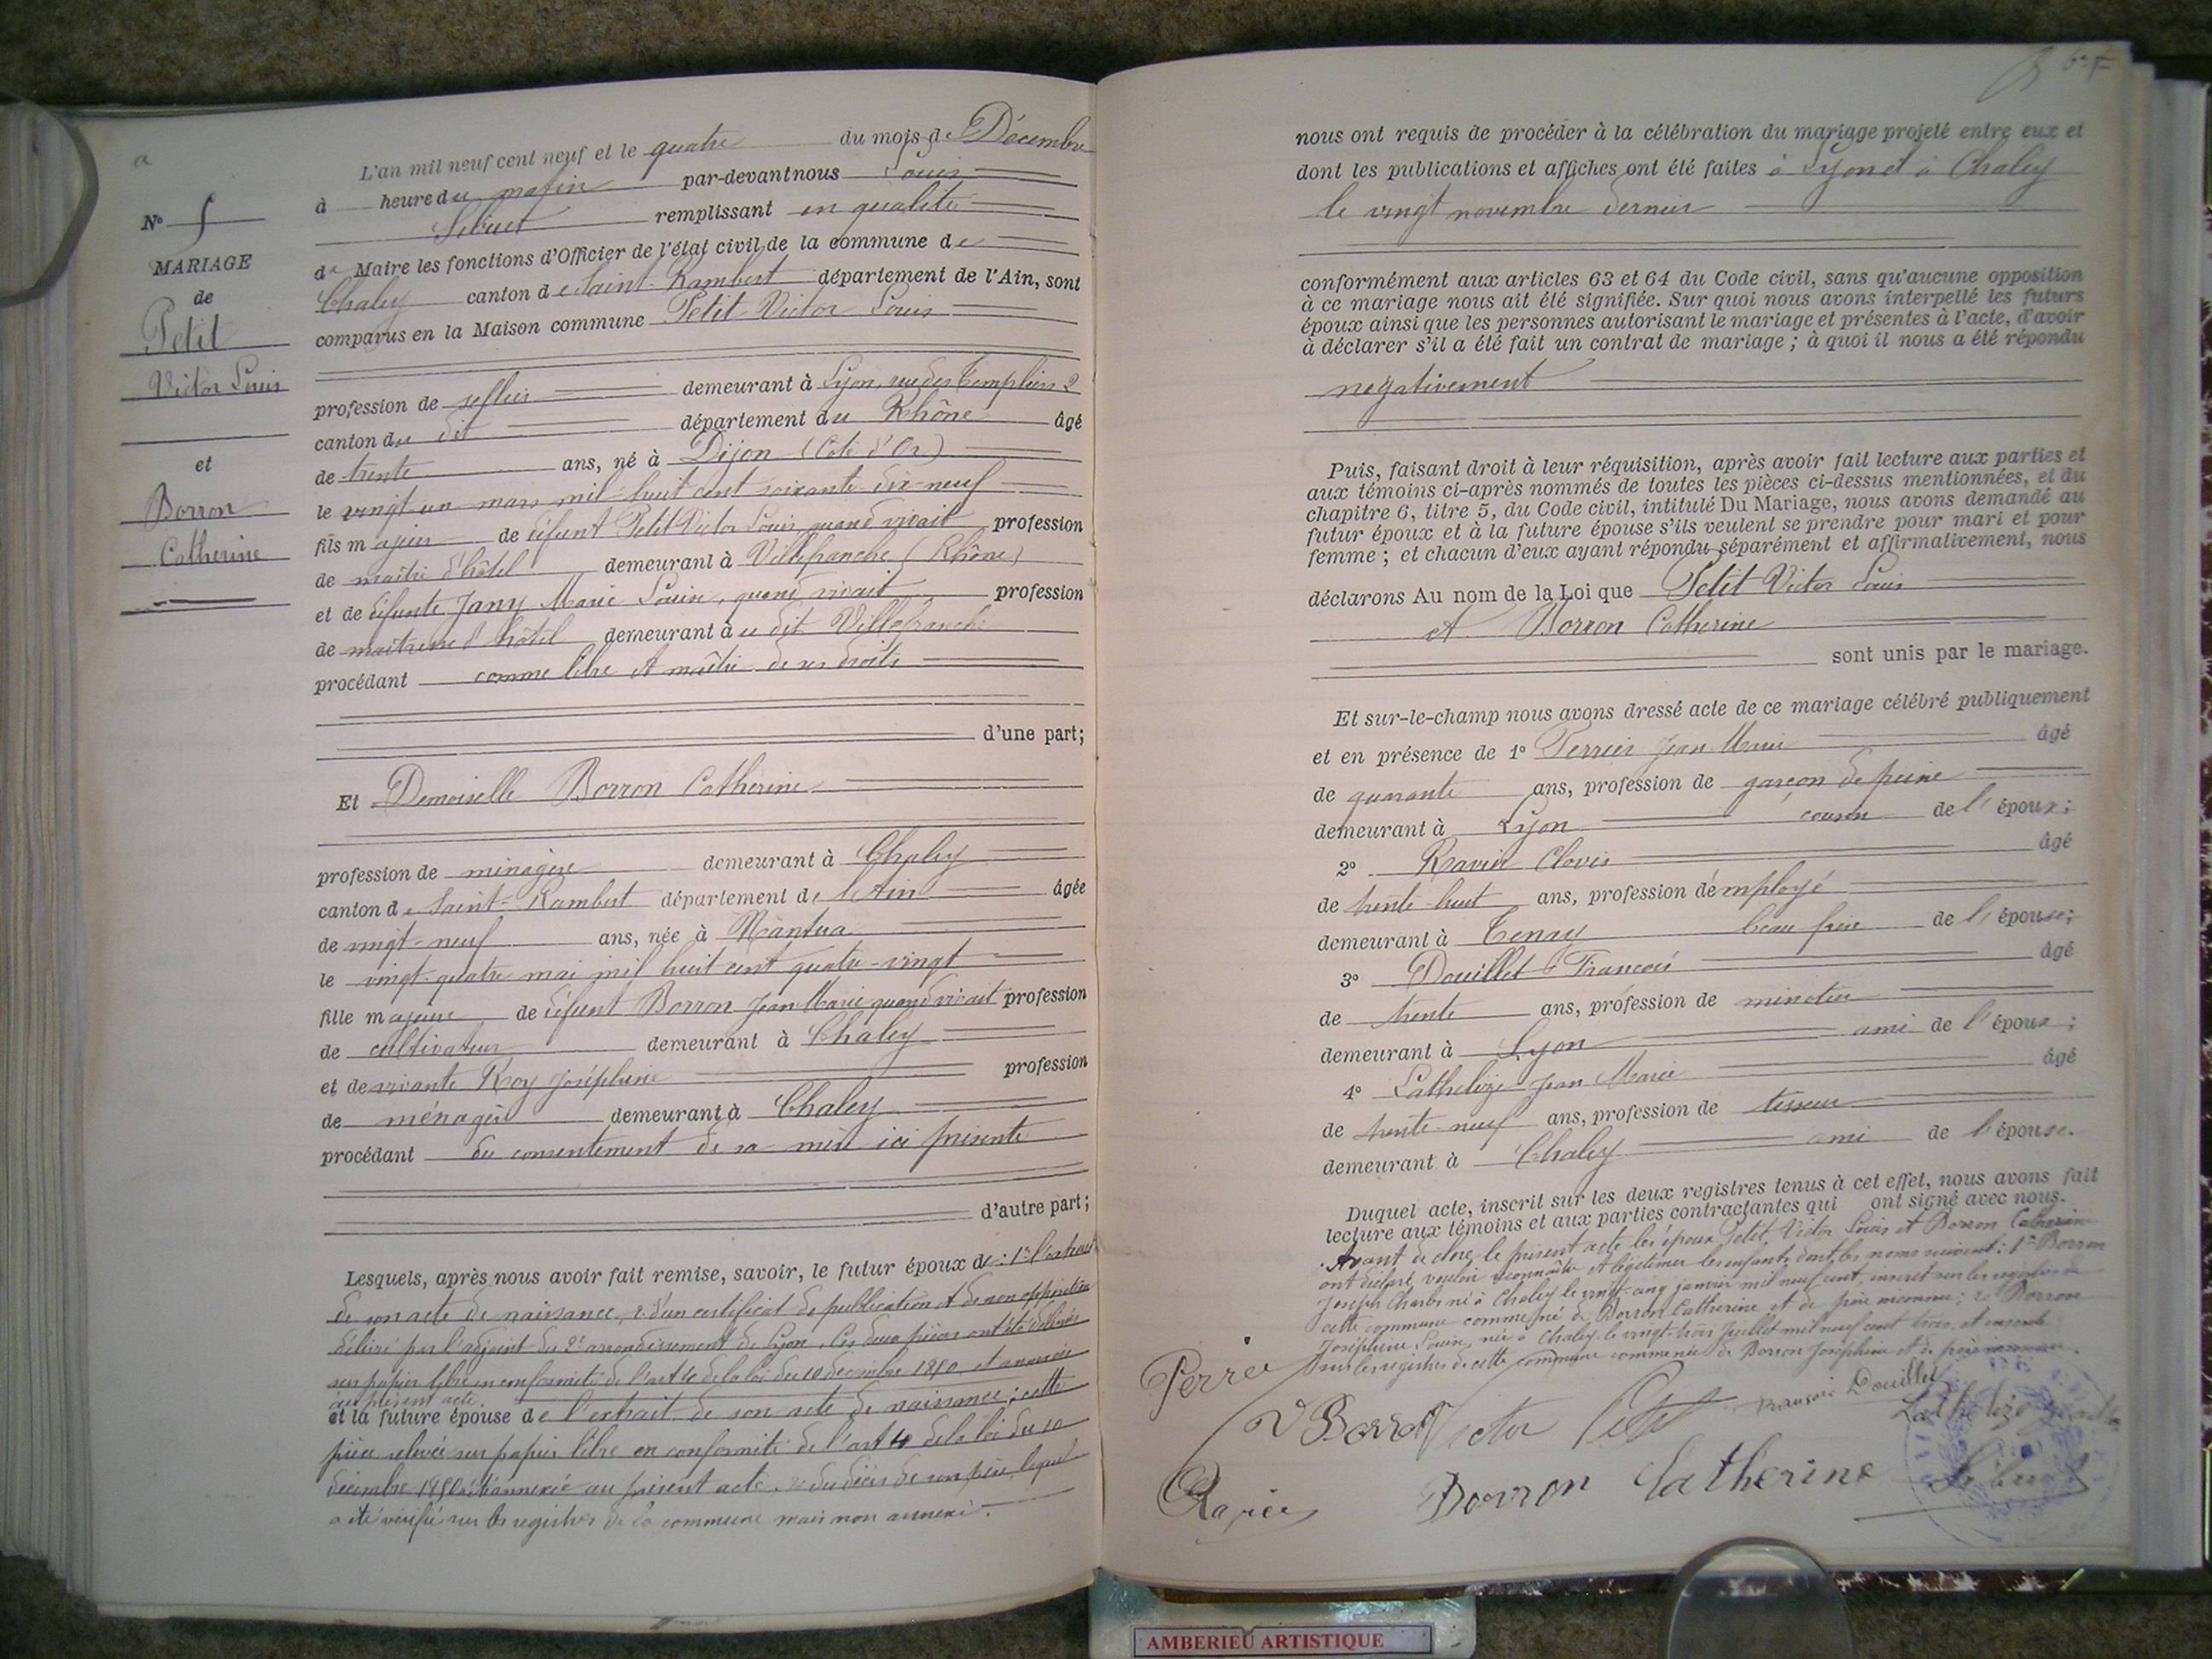 N° 5
MARIAGE
de
Petit
Victor Louis
et
Borron
Catherine
L'an mil neuf cent neuf et le quatre du mois de Décembre
à heure du matin par-devant nous Louis
remplissant en qualité
de Maire les fonctions d'Officier de l'état civil de la commune de
Chaley canton de Saint-Rambert département de l'Ain, sont
comparus en la Maison commune Petit Victor Louis
profession de demeurant à Lyon, rue des Templiers 2
canton du dit département du Rhône âgé
de trente ans, né à Dijon (Côte d'Or)
le vingt un mars mil huit cent soixante-dix-neuf
fils majeur de défunt Petit Victor Louis quand vivait profession
de maître d'hôtel demeurant à Villefranche (Rhône)
et de défunte Jany Marie Louise, quand vivait profession
de maîtresse d'hôtel demeurant au dit Villefranche
procédant comme libre et maître de ses droits
d'une part;
Et Demoiselle Borron Catherine
profession de ménagère demeurant à Chaley
canton de Saint-Rambert département de l'Ain âgée
de vingt-neuf ans, née à Nantua
le vingt-quatre mai mil huit cent quatre-vingt
fille majeure de défunt Borron Jean Marie quand vivait profession
de cultivateur demeurant à Chaley
et de vivante Roy Joséphine profession
de ménagère demeurant à Chaley
procédant du consentement de sa mère ici présente
d'autre part;
Lesquels, après nous avoir fait remise, savoir, le futur époux de : 1° l'extrait
de son acte de naissance, 2° d'un certificat de publication et de non opposition
délivré par l'adjoint du 2e arrondissement de Lyon. Ces deux pièces ont été délivrées
sur papier libre en conformité de l'art 4 de la loi du 10 décembre 1850 et annexées
au présent acte.
et la future épouse de l'extrait de son acte de naissance; cette
pièce relevée sur papier libre en conformité de l'art 4 de la loi du 10
décembre 1850 et annexée au présent acte. 2° du décès de son père, lequel
a été vérifié sur les registres de la commune mais non annexé.
nous ont requis de procéder à la célébration du mariage projeté entre eux et
dont les publications et affiches ont été faites à Lyon et à Chaley
le vingt novembre dernier
conformément aux articles 63 et 64 du Code civil, sans qu'aucune opposition
à ce mariage nous ait été signifiée. Sur quoi nous avons interpellé les futurs
époux ainsi que les personnes autorisant le mariage et présentes à l'acte, d'avoir
à déclarer s'il a été fait un contrat de mariage ; à quoi il nous a été répondu
négativement
Puis, faisant droit à leur réquisition, après avoir fait lecture aux parties et
aux témoins ci-après nommés de toutes les pièces ci-dessus mentionnées, et du
chapitre 6, titre 5, du Code civil, intitulé Du Mariage, nous avons demandé au
futur époux et à la future épouse s'ils veulent se prendre pour mari et pour
femme ; et chacun d'eux ayant répondu séparément et affirmativement, nous
déclarons Au nom de la Loi que Petit Victor Louis
et Borron Catherine
sont unis par le mariage.
Et sur-le-champ nous avons dressé acte de ce mariage célébré publiquement
et en présence de 1° Perrier Jean Marie âgé
de quarante ans, profession de garçon de peine
demeurant à Lyon cousin de l'époux;
2° Ravier Clovis âgé
de trente-huit ans, profession d'employé
demeurant à Tenay beau frère de l'épouse;
3° Douillet François âgé
de trente ans, profession de minotier
demeurant à Lyon ami de l'époux;
4° Lathelize Jean Marie âgé
de trente-neuf ans, profession de tisseur
demeurant à Chaley ami de l'épouse.
Duquel acte, inscrit sur les deux registres tenus à cet effet, nous avons fait
lecture aux témoins et aux parties contractantes qui ont signé avec nous.
Avant de clore le présent acte les époux Petit Victor Louis et Borron Catherine
ont déclaré vouloir reconnaître et légitimer les enfants dont les noms suivent: 1° Borron
Joseph Charles né à Chaley le vingt-cinq janvier mil neuf cent, inscrit sur les registres de
cette commune comme né de Borron Catherine et de père inconnu; 2° Borron
Joséphine Louise, née à Chaley le vingt-trois juillet mil neuf cent trois et inscrite
sur les registres de cette commune comme née de Borron Joséphine et de père inconnu.
Perrier
François Douillet
Victor Petit
Lathelize
Ravier
Borron Catherine
AMBERIEU ARTISTIQUE